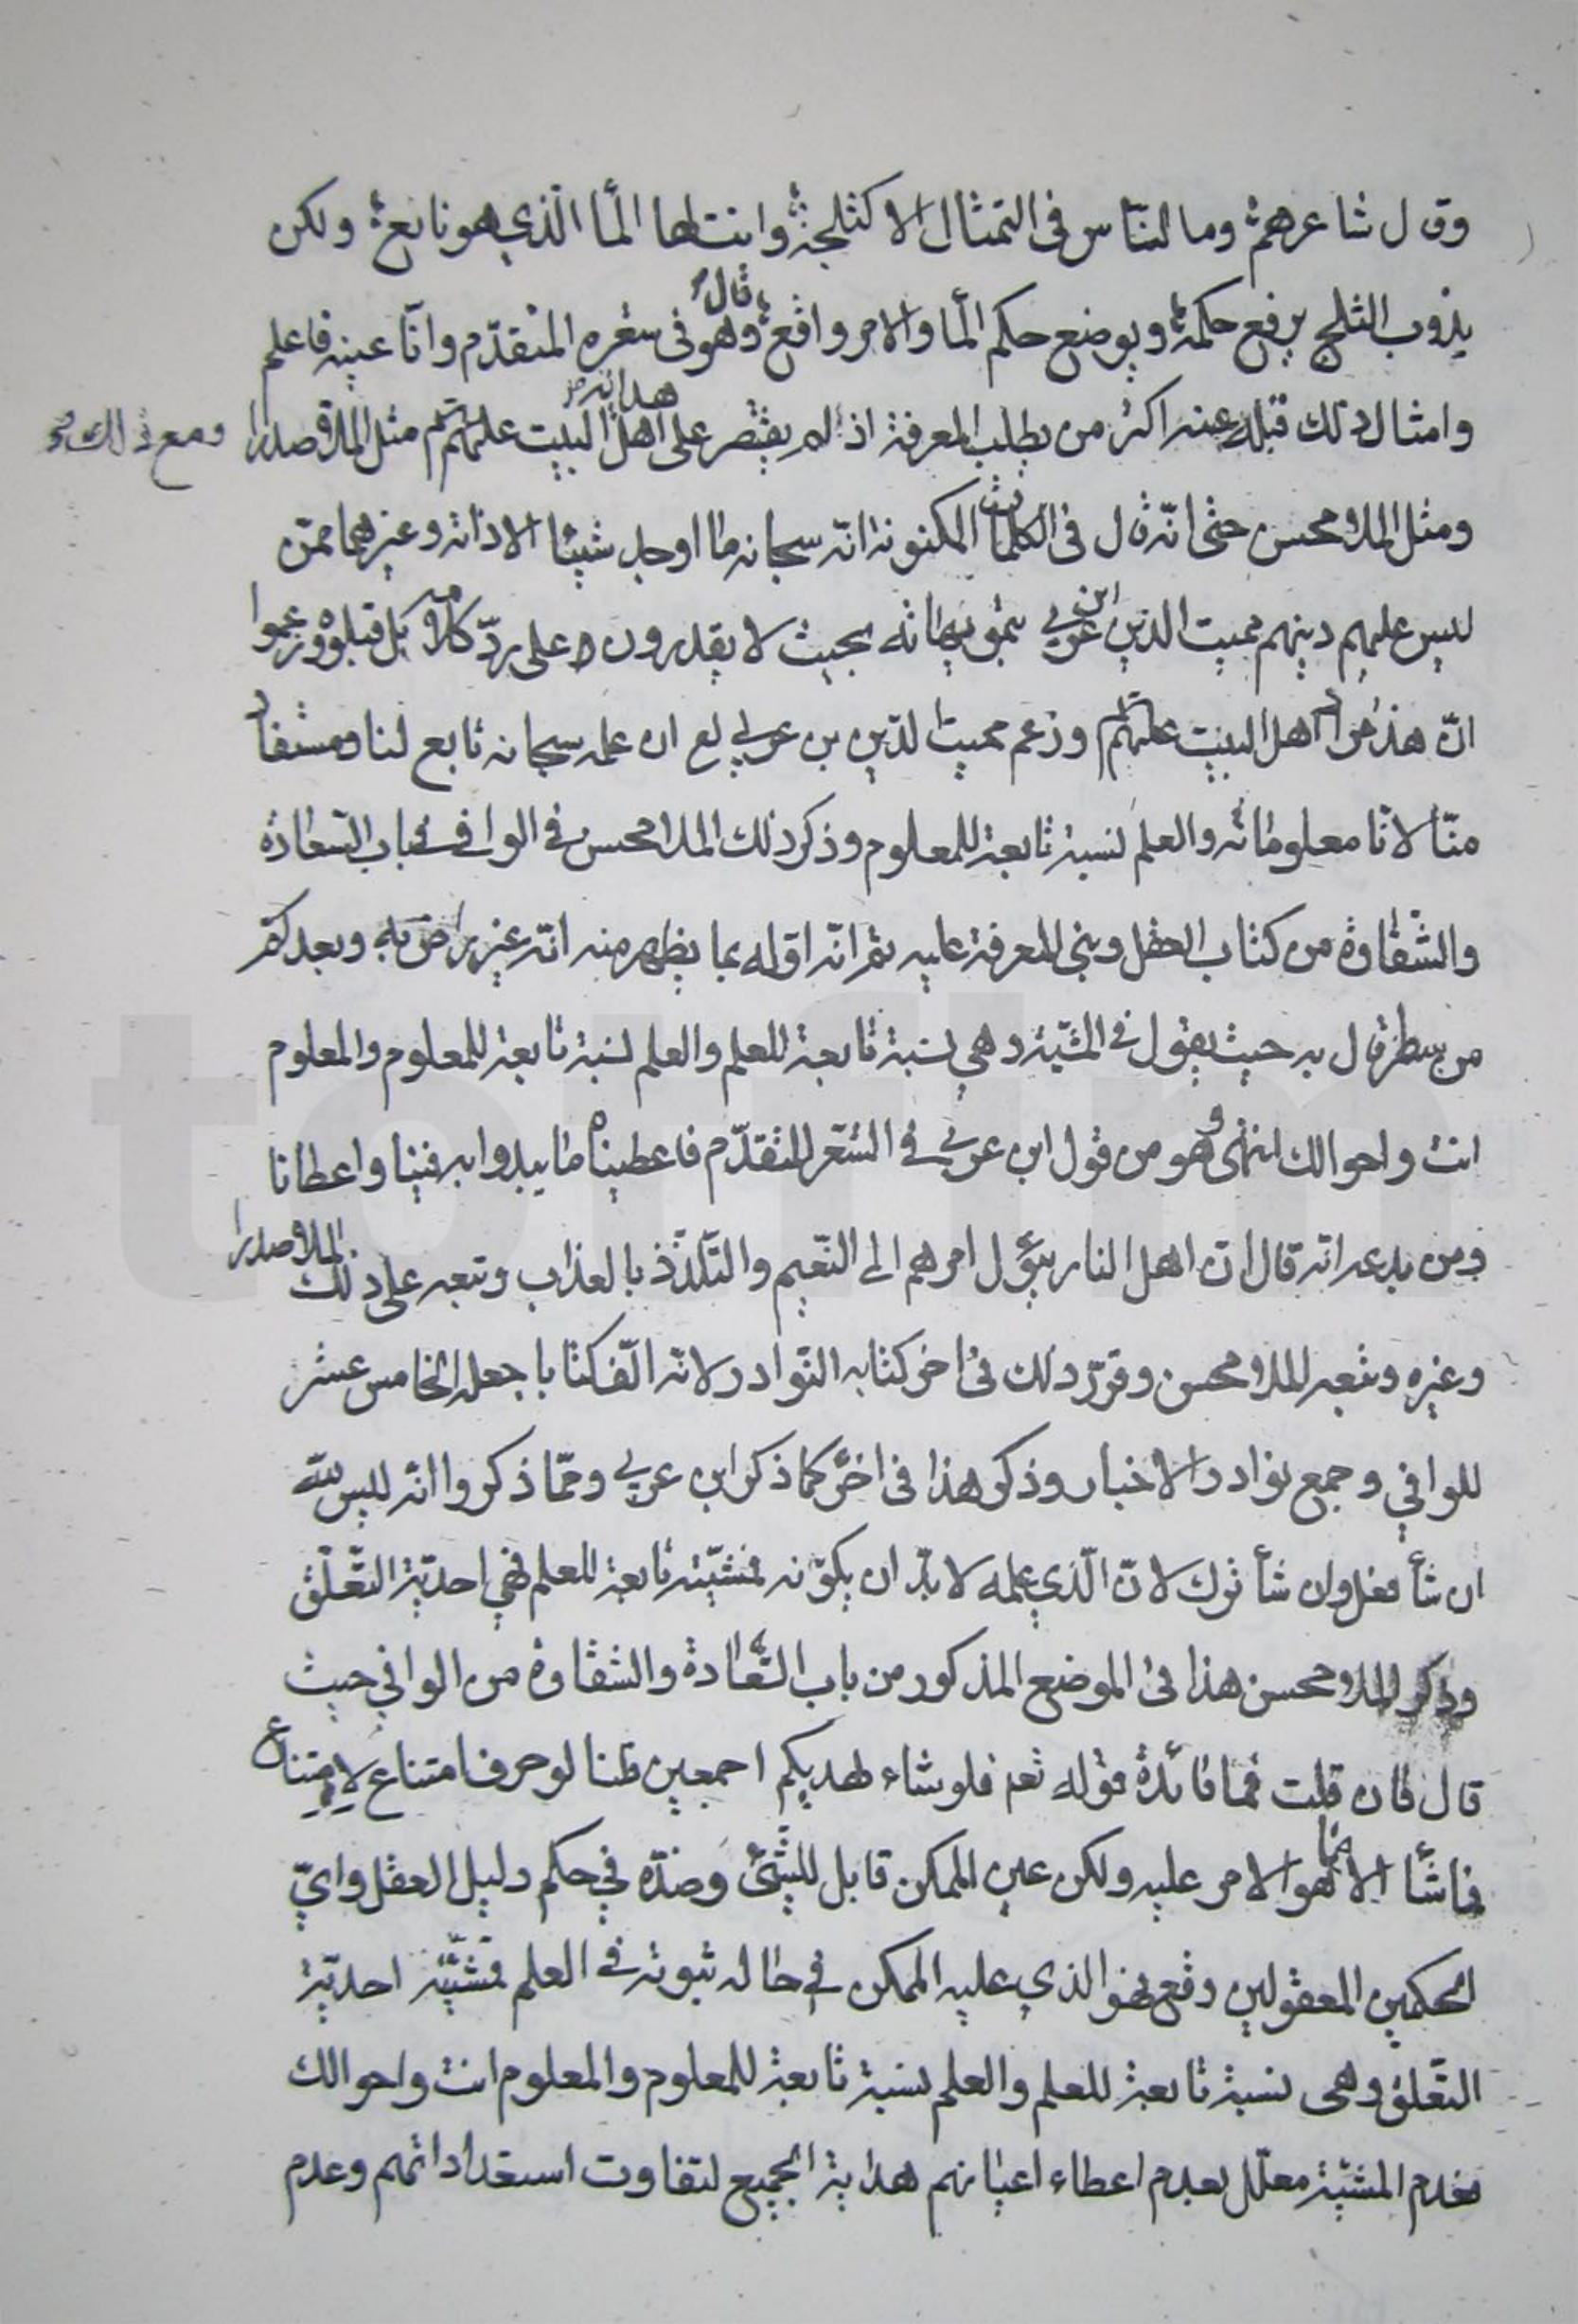 وقال شاعرهم وما الناس في التمثال الا كثلجة وانت لها الماء الذي هو نابع ولكن
يذوب الثلج يرفع حكمه ويوضع حكم الماء والامر واقع قال وهو في شعره المتقدم وانا عينه فاعلم
وامثال ذلك قبله عنه اكثر من يطلب المعرفة اذا لم يقتصر على هداية اهل البيت عليهم مثل الملا صدرا ومع ذلك
ومثل الملا محسن حتى انه قال في الكلمات المكنونة انه سبحانه ما اوجد شيئا الا ذاته وغيرهما ممن
لبس عليهم دينهم مميت الدين ابن عربي بتمويهاته بحيث لا يقدرون على رد كلامه بل قبلوه وزعموا
ان هذا مراد اهل البيت عليهم وزعم مميت الدين بن عربي لع ان علمه سبحانه تابع لنا ومستفاد
منا لانا معلوماته والعلم نسبة تابعة للمعلوم وذكر ذلك الملا محسن في الوافي في باب السعادة
والشقاوة من كتاب العقل وبنى المعرفة عليه ثم انه اوله بما يظهر منه انه غير راض به وبعد كم
من سطر قال به حيث يقول في المشية وهي نسبة تابعة للعلم والعلم نسبة تابعة للمعلوم والمعلوم
انت واحوالك انتهى وهو من قول ابن عربي في الشعر المتقدم فاعطيناه ما يبدوا به فينا واعطانا
ومن بدعه انه قال ان اهل النار يؤل امرهم الى النعيم والتلذذ بالعذاب وتبعه على ذلك الملا صدرا
وغيره وتبعه الملا محسن وقرر ذلك في اخر كتابه النوادر لانه الف كتابا جعله الخامس عشر
للوافي وجمع نوادر الاخبار وذكر هذا في اخره كما ذكر ابن عربي ومما ذكروا انه ليس لله
ان شأ فعل وان شأ ترك لان الذي علمه لا بد ان يكونه فمشيته تابعة للعلم فهي احدية التعلق
وذكر الملا محسن هذا في الموضع المذكور من باب السعادة والشقاوة من الوافي حيث
قال فان قلت فما فائدة قوله تعم فلو شاء لهديكم اجمعين قلنا لو حرف امتناع لامتناع
فما شأ الا بما هو الامر عليه ولكن عين الممكن قابل للشئ وضده في حكم دليل العقل واي
الحكمين المعقولين وقع فهو الذي عليه الممكن في حالة ثبوته في العلم فمشيته احدية
التعلق وهي نسبة تابعة للعلم والعلم نسبة تابعة للمعلوم والمعلوم انت واحوالك
فعدم المشية معلل بعدم اعطاء اعيانهم هداية الجميع لتفاوت استعداداتهم وعدم